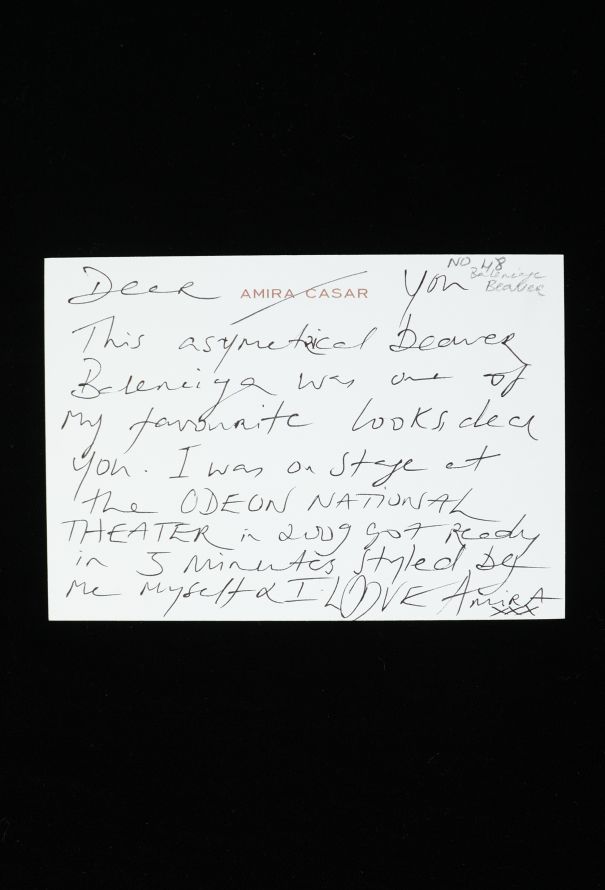 NO 48
Balenciaga
Beaver
Dear AMIRA CASAR You
This asymetrical Beaver
Balenciaga was one of
my favourite looks, dear
you. I was on stage at
the ODEON NATIONAL
THEATER in 2009 got ready
in 5 minutes styled by
me myself & I LOVE AMIRA XXX